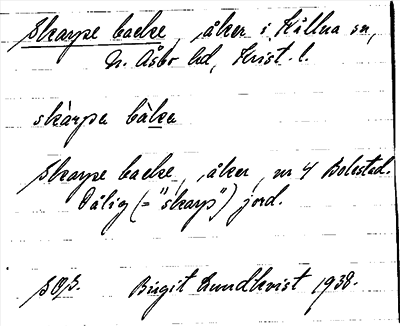 Skarpe backe, åker i Källna sn,
N. Åsbo hd, Krist. l.
skàrpa bàka
Skarpe backe, åker, nr 4 Bolestad.
Dålig (= "skarp") jord.
Birgit Lundkvist 1938.